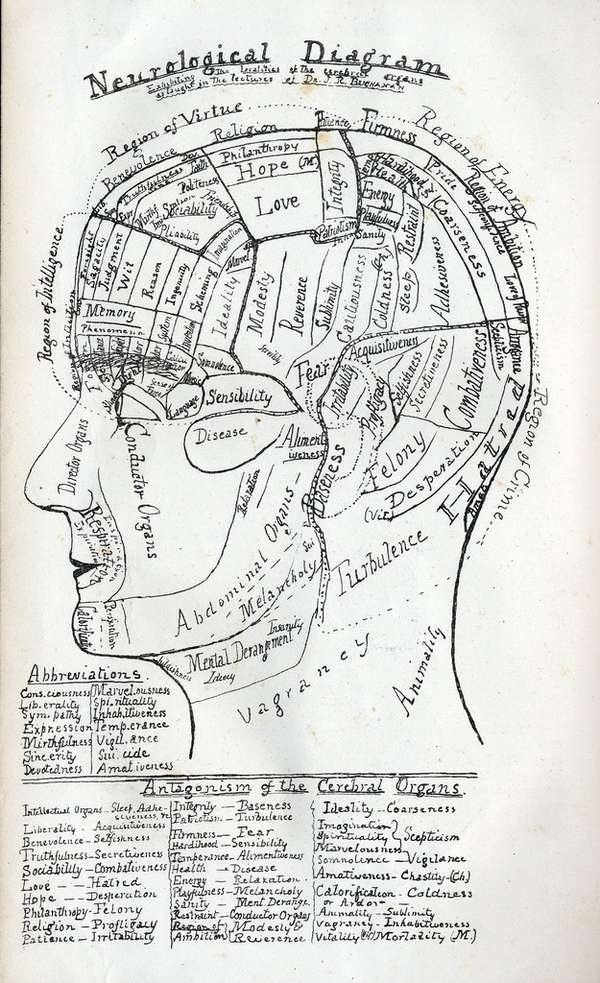 Neurological Diagram
Exhibiting The localities of the cerebral organs
as taught in The lectures of Dr. J. R. Buchanan
Region of Virtue
Region of Energy
Region of Intelligence
Region of Ambition
Region of Crime
Benevolence
Religion
Patience
Firmness
Philanthropy
Hope (M)
Love
Integrity
Patriotism
Hardihood
Health
Energy
Playfulness
Sanity
Restraint
Coarseness
Love of Power
Arrogance
Truthfulness
Faith
Politeness
Sociability
Pliability
Imagination
Marvel
Foresight
Sagacity
Judgment
Wit
Reason
Ingenuity
Scheming
Ideality
Modesty
Reverence
Sublimity
Cautiousness
Coldness
(Ch)
Sleep
Adhesiveness
Memory
Phenomena
System
Invention
Somnolence
Sensibility
Language
Fear
Acquisitiveness
Irritability
Profligacy
Selfishness
Secretiveness
Combativeness
Scepticism
Disease
Alimentiveness
Baseness
Felony
Desperation
Hatred
Amat
(Vit)
Director Organs
Conductor Organs
Respiration
Relaxation
Abdominal Organs
Melancholy
Sui
Turbulence
Calorification
Mental Derangement
Insanity
Idiocy
Vagrancy
Animality
Abbreviations.
Cons.ciousness Marvel.ousness
Lib.erality Spi.rituality
Sym.pathy Inhabitiveness
Expression Temp.erance
Mirthfulness Vigil.ance
Sinc.erity Sui.cide
Devotedness Amativeness
Antagonism of the Cerebral Organs.
Intellectual Organs - Sleep, Adhesiveness,
Liberality - Acquisitiveness
Benevolence - Selfishness
Truthfulness - Secretiveness
Sociability - Combativeness
Love - - Hatred
Hope - - Desperation
Philanthropy - Felony
Religion - Profligacy
Patience - Irritability
Integrity - Baseness
Patriotism - Turbulence
Firmness - Fear
Hardihood - Sensibility
Temperance - Alimentiveness
Health - Disease
Energy - Relaxation
Playfulness - Melancholy
Sanity - Ment Derange.
Restraint - Conductor Organs
Region of Ambition } Modesty & Reverence
Ideality - Coarseness
Imagination
Spirituality } Scepticism
Marvelousness
Somnolence - Vigilance
Amativeness - Chastity (Ch)
Calorification - Coldness
or Ardor -
Animality - Sublimity
Vagrancy - Inhabitiveness
Vitality (Vit) Mortality (M.)